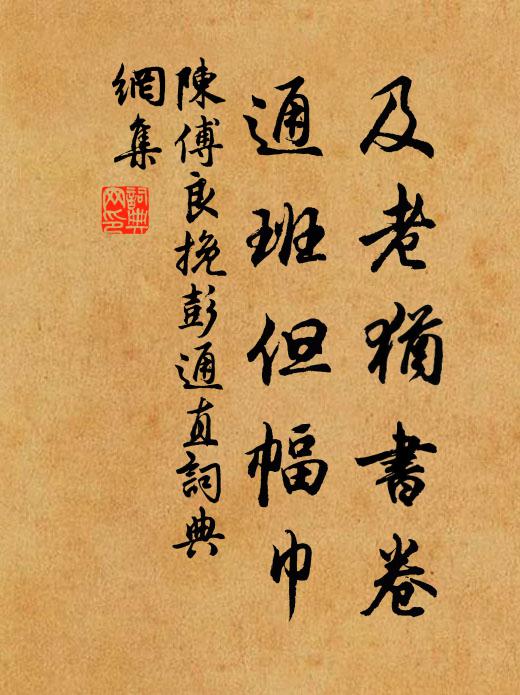 及老猶書卷
通班但幅巾
陳傅良挽彭通直詞典
網集
詞典網印